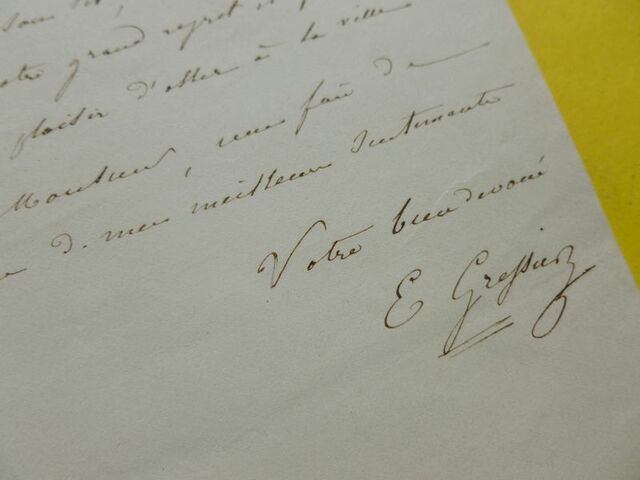 son
grand regret et
plaisir d'aller à la ville
Monsieur, une fois de
d. mes meilleurs sentiments
Votre bien devoué
E Gressier